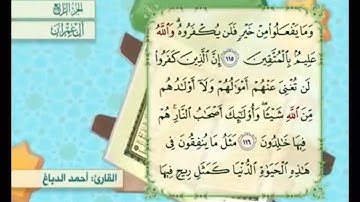 الجزء الرابع
آل عمران
وَمَا يَفْعَلُوا۟ مِنْ خَيْرٍ فَلَن يُكْفَرُوهُ ۗ وَٱللَّهُ
عَلِيمٌۢ بِٱلْمُتَّقِينَ ١١٥ إِنَّ ٱلَّذِينَ كَفَرُوا۟
لَن تُغْنِىَ عَنْهُمْ أَمْوَٰلُهُمْ وَلَآ أَوْلَٰدُهُم
مِّنَ ٱللَّهِ شَيْـًٔا ۖ وَأُو۟لَٰٓئِكَ أَصْحَٰبُ ٱلنَّارِ ۚ هُمْ
فِيهَا خَٰلِدُونَ ١١٦ مَثَلُ مَا يُنفِقُونَ فِى
هَٰذِهِ ٱلْحَيَوٰةِ ٱلدُّنْيَا كَمَثَلِ رِيحٍ فِيهَا
القارئ: أحمد الدباغ